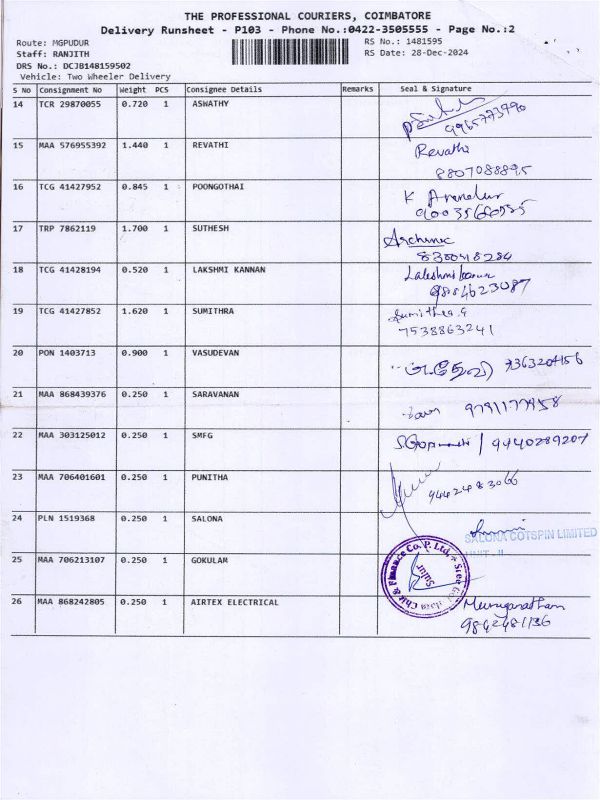 THE PROFESSIONAL COURIERS, COIMBATORE
Delivery Runsheet - P103 - Phone No.:0422-3505555 - Page No.:2
Route: MGPUDUR RS No.: 1481595
Staff: RANJITH RS Date: 28-Dec-2024
DRS No.: DCJB148159502
Vehicle: Two Wheeler Delivery
S No Consignment No Weight PCS Consignee Details Remarks Seal & Signature
14 TCR 29870055 0.720 1 ASWATHY
9965773990
15 MAA 576955392 1.440 1 REVATHI Revathi
8807088895
16 TCG 41427952 0.845 1 POONGOTHAI K
17 TRP 7862119 1.700 1 SUTHESH
18 TCG 41428194 0.520 1 LAKSHMI KANNAN
9884623087
19 TCG 41427852 1.620 1 SUMITHRA
7538863241
20 PON 1403713 0.900 1 VASUDEVAN
21 MAA 868439376 0.250 1 SARAVANAN
22 MAA 303125012 0.250 1 SMFG 9440289207
23 MAA 706401601 0.250 1 PUNITHA
9442483066
24 PLN 1519368 0.250 1 SALONA
SALONA COTSPIN LIMITED
UNIT - II
25 MAA 706213107 0.250 1 GOKULAM
Chit & Finance Co. P. Ltd., Sree
Sulur
26 MAA 868242805 0.250 1 AIRTEX ELECTRICAL
9842481136